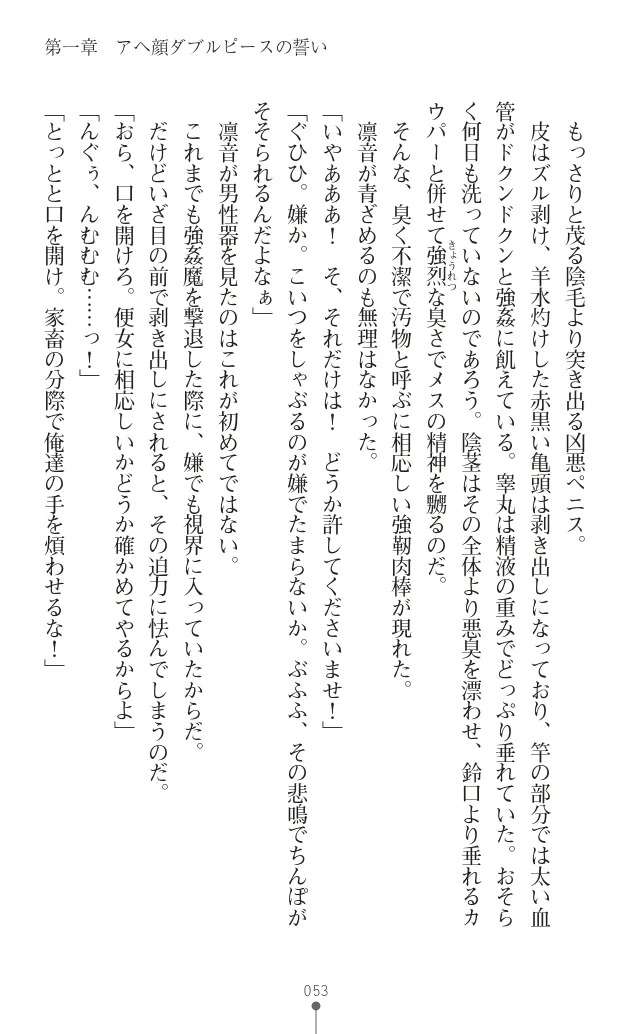 第一章　アヘ顔ダブルピースの誓い
もっさりと茂る陰毛より突き出る凶悪ペニス。
皮はズル剥け、羊水灼けした赤黒い亀頭は剥き出しになっており、竿の部分では太い血
管がドクンドクンと強姦に飢えている。睾丸は精液の重みでどっぷり垂れていた。おそら
く何日も洗っていないのであろう。陰茎はその全体より悪臭を漂わせ、鈴口より垂れるカ
ウパーと併せて強烈な臭さでメスの精神を嬲るのだ。
きょうれつ
そんな、臭く不潔で汚物と呼ぶに相応しい強靭肉棒が現れた。
凛音が青ざめるのも無理はなかった。
「いやあああ！　そ、それだけは！　どうか許してくださいませ！」
「ぐひひ。嫌か。こいつをしゃぶるのが嫌でたまらないか。ぶふふ、その悲鳴でちんぽが
そそられるんだよなぁ」
凛音が男性器を見たのはこれが初めてではない。
これまでも強姦魔を撃退した際に、嫌でも視界に入っていたからだ。
だけどいざ目の前で剥き出しにされると、その迫力に怯んでしまうのだ。
「おら、口を開けろ。便女に相応しいかどうか確かめてやるからよ」
「んぐぅ、んむむむ……っ！」
「とっとと口を開け。家畜の分際で俺達の手を煩わせるな！」
053